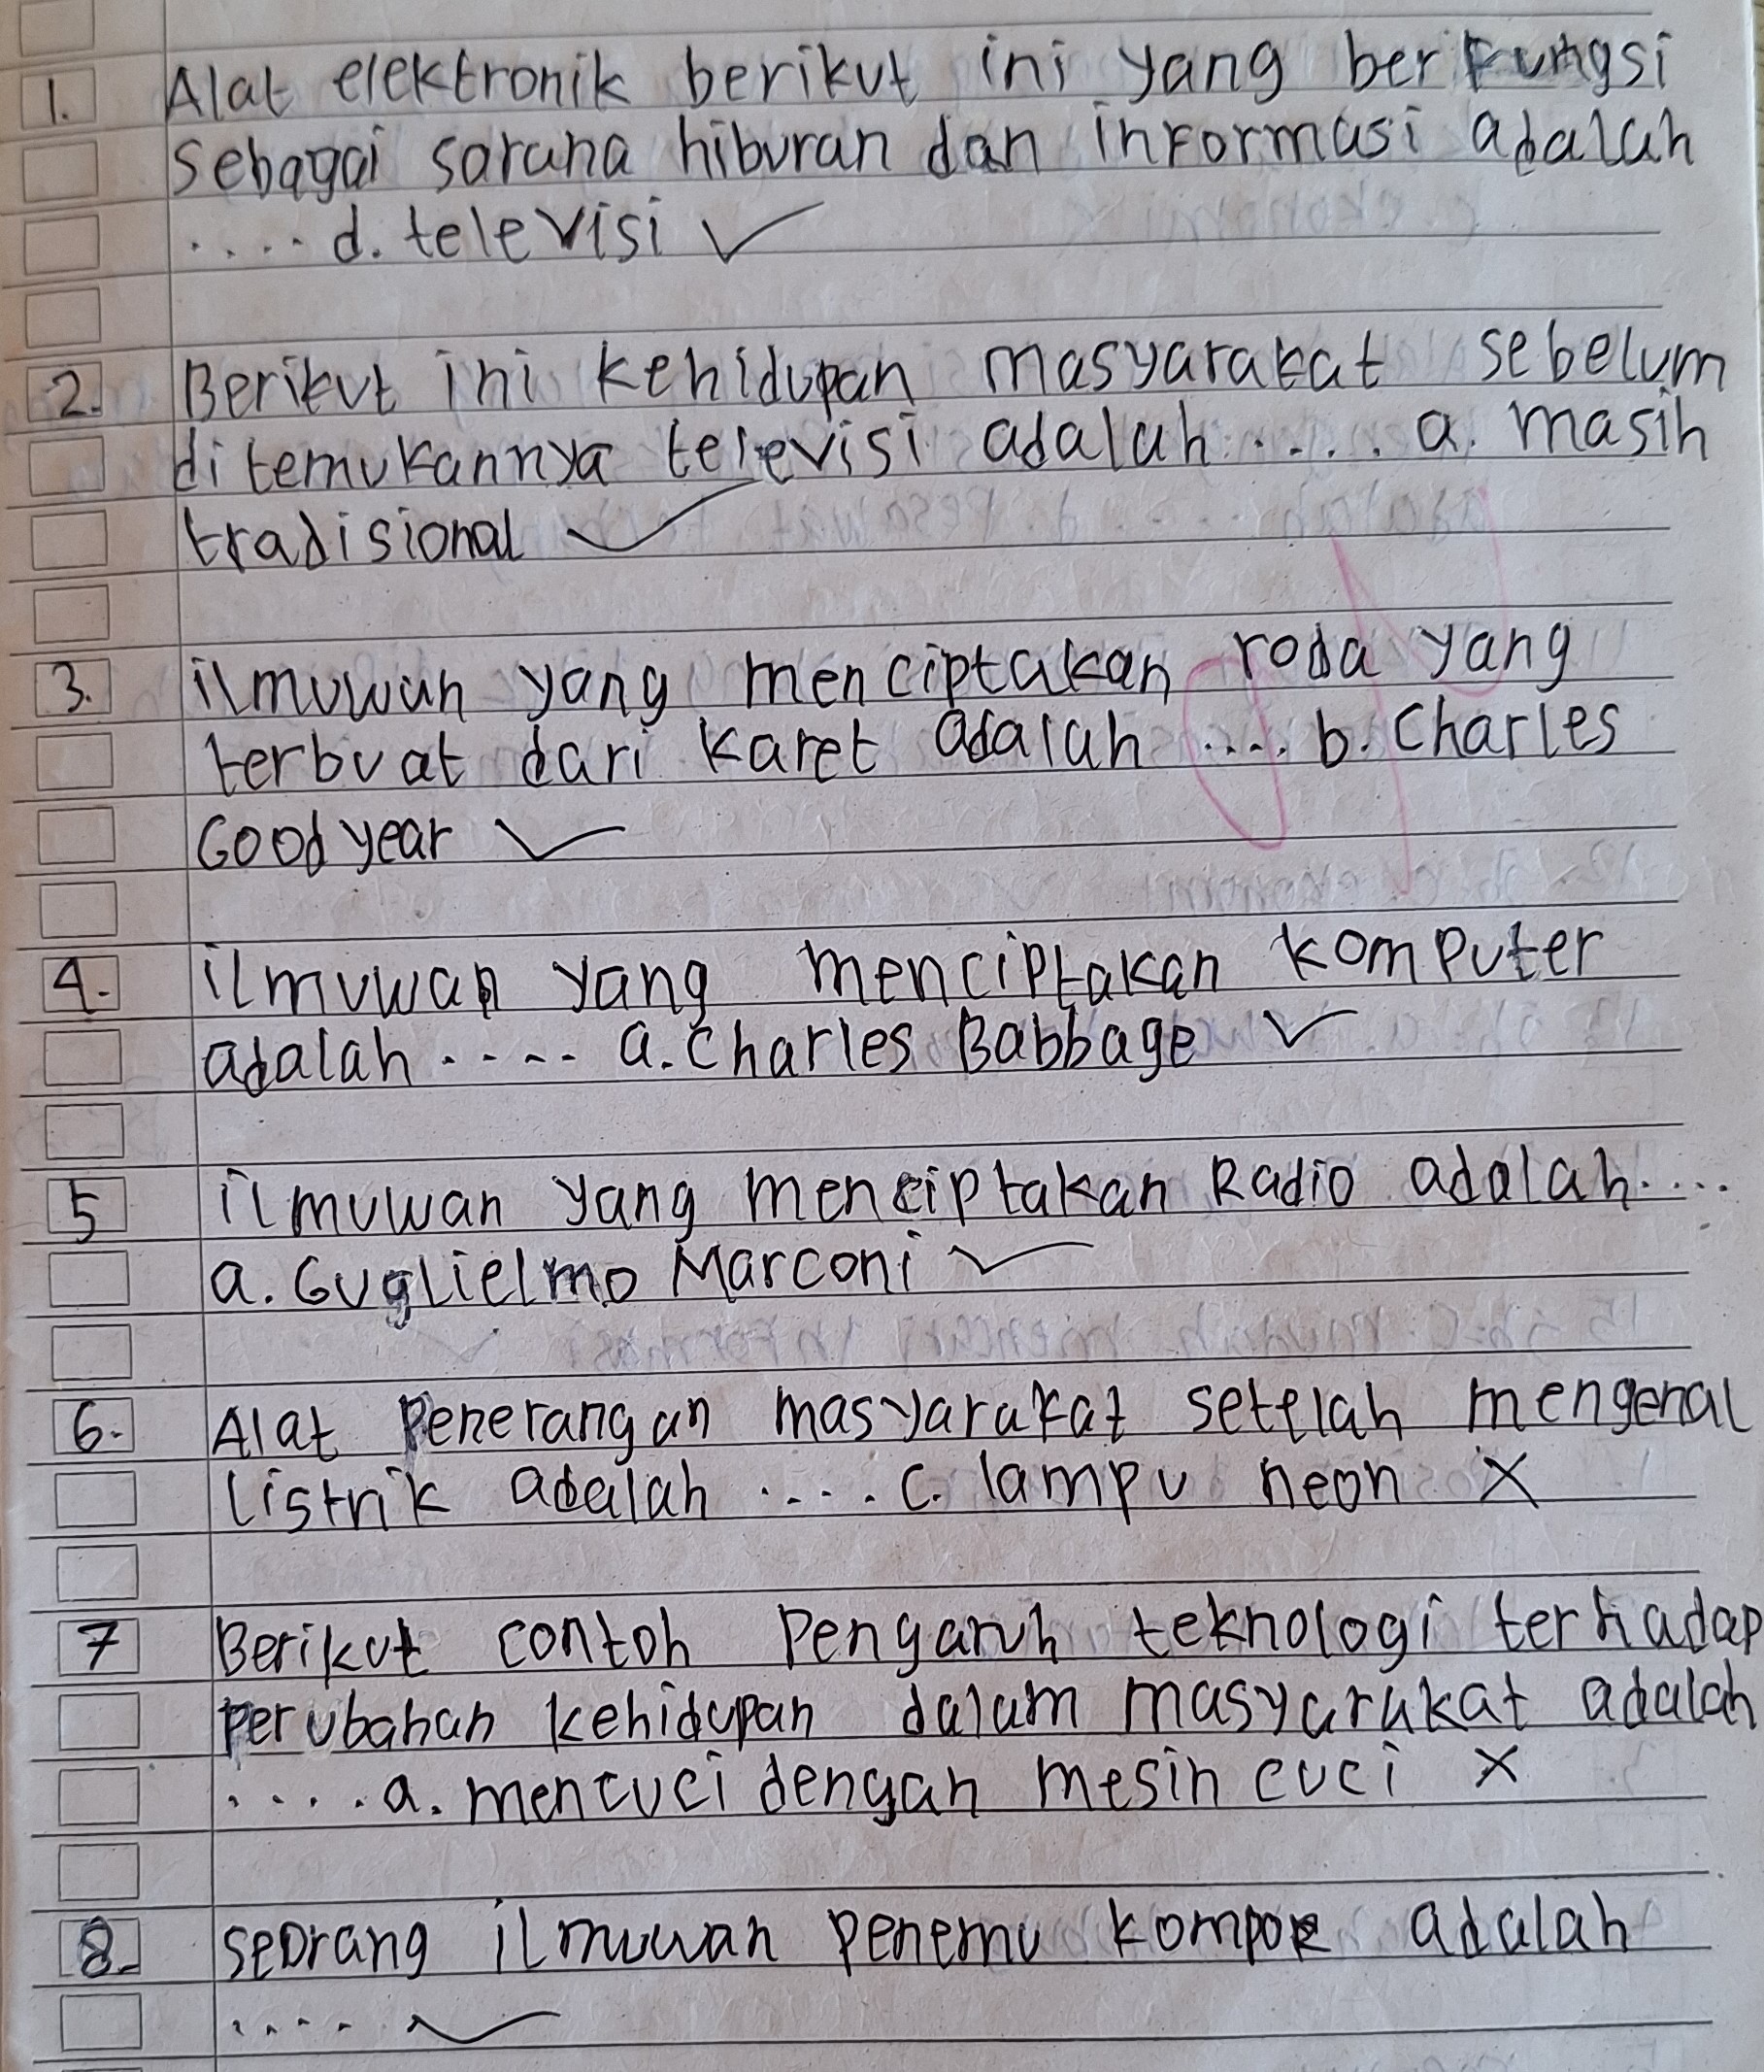 1. Alat elektronik berikut ini yang berfungsi
sebagai sarana hiburan dan informasi adalah
.... d. televisi ✓
2. Berikut ini kehidupan masyarakat sebelum
ditemukannya televisi adalah .... a. masih
tradisional ✓
3. ilmuwan yang menciptakan roda yang
terbuat dari karet adalah .... b. Charles
Goodyear ✓
4. ilmuwan yang menciptakan komputer
adalah .... a. Charles Babbage ✓
5 ilmuwan yang menciptakan Radio adalah ....
a. Guglielmo Marconi ✓
6. Alat Penerangan masyarakat setelah mengenal
listrik adalah .... c. lampu neon X
7 Berikut contoh Pengaruh teknologi terhadap
perubahan kehidupan dalam masyarakat adalah
.... a. mencuci dengan mesin cuci X
8. seorang ilmuwan Penemu kompor adalah
.... ✓